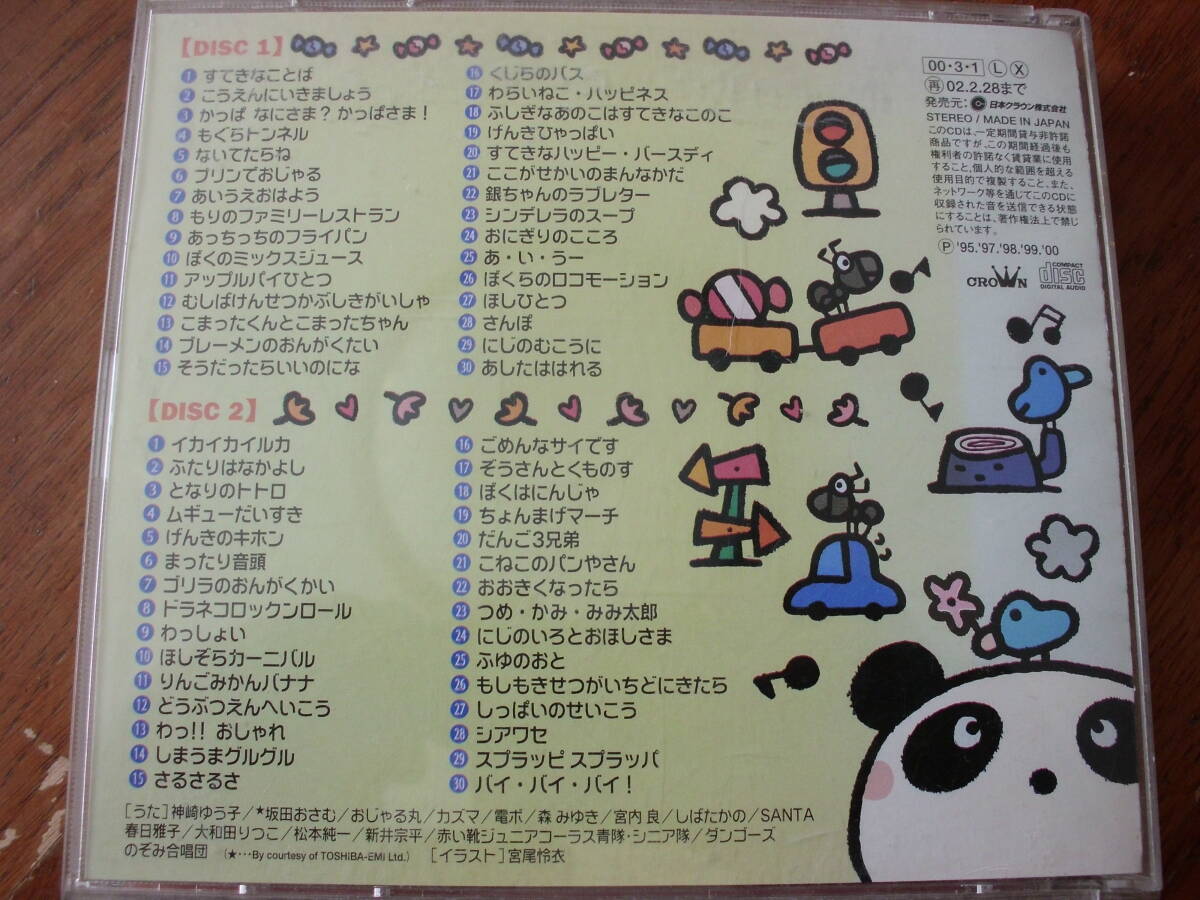 【DISC 1】
1 すてきなことば
2 こうえんにいきましょう
3 かっぱ なにさま? かっぱさま!
4 もぐらトンネル
5 ないてたらね
6 プリンでおじゃる
7 あいうえおはよう
8 もりのファミリーレストラン
9 あっちっちのフライパン
10 ぼくのミックスジュース
11 アップルパイひとつ
12 むしばけんせつかぶしきがいしゃ
13 こまったくんとこまったちゃん
14 ブレーメンのおんがくたい
15 そうだったらいいのにな
16 くじらのバス
17 わらいねこ・ハッピネス
18 ふしぎなあのこはすてきなこのこ
19 げんきひゃっぱい
20 すてきなハッピー・バースディ
21 ここがせかいのまんなかだ
22 銀ちゃんのラブレター
23 シンデレラのスープ
24 おにぎりのこころ
25 あ・い・うー
26 ぼくらのロコモーション
27 ほしひとつ
28 さんぽ
29 にじのむこうに
30 あしたははれる
【DISC 2】
1 イカイカイルカ
2 ふたりはなかよし
3 となりのトトロ
4 ムギューだいすき
5 げんきのキホン
6 まったり音頭
7 ゴリラのおんがくかい
8 ドラネコロックンロール
9 わっしょい
10 ほしぞらカーニバル
11 りんごみかんバナナ
12 どうぶつえんへいこう
13 わっ!! おしゃれ
14 しまうまグルグル
15 さるさるさ
16 ごめんなサイです
17 ぞうさんとくものす
18 ぼくはにんじゃ
19 ちょんまげマーチ
20 だんご3兄弟
21 こねこのパンやさん
22 おおきくなったら
23 つめ・かみ・みみ太郎
24 にじのいろとおほしさま
25 ふゆのおと
26 もしもきせつがいちどにきたら
27 しっぱいのせいこう
28 シアワセ
29 スプラッピ スプラッパ
30 バイ・バイ・バイ!
[うた]神崎ゆう子/★坂田おさむ/おじゃる丸/カズマ/電ボ/森 みゆき/宮内 良/しばたかの/SANTA
春日雅子/大和田りつこ/松本純一/新井宗平/赤い靴ジュニアコーラス青隊・シニア隊/ダンゴーズ
のぞみ合唱団 (★…By courtesy of TOSHIBA-EMI Ltd.) [イラスト]宮尾怜衣
00・3・1 Ⓛ Ⓧ
再 02.2.28まで
発売元: 日本クラウン株式会社
STEREO / MADE IN JAPAN
このCDは、一定期間貸与非許諾
商品ですが、この期間経過後も
権利者の許諾なく賃貸業に使用
すること、個人的な範囲を超える
使用目的で複製すること、また、
ネットワーク等を通じてこのCDに
収録された音を送信できる状態
にすることは、著作権法上で禁じ
られています。
Ⓟ '95.'97.'98.'99.'00
CROWN
COMPACT disc DIGITAL AUDIO